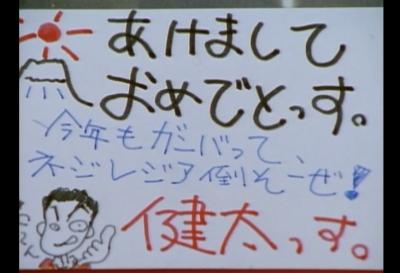 あけまして
おめでとっす。
今年もガンバって、
ネジレジア倒そーぜ!
健太っす。